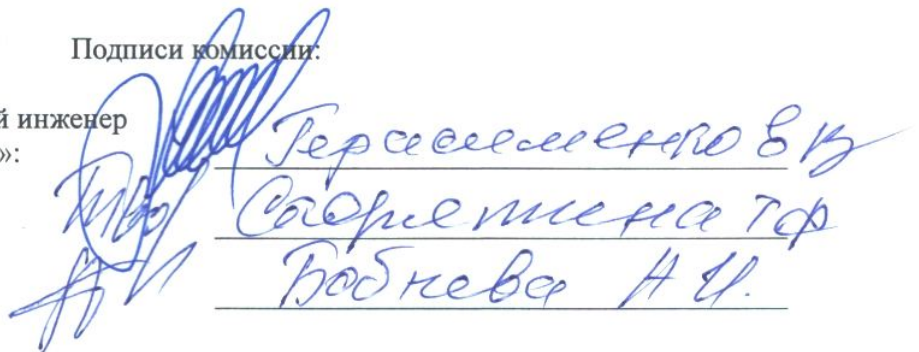 Подписи комиссии:
й инженер
Герасименко В В
»:
Т Ф
Бобнева А И.